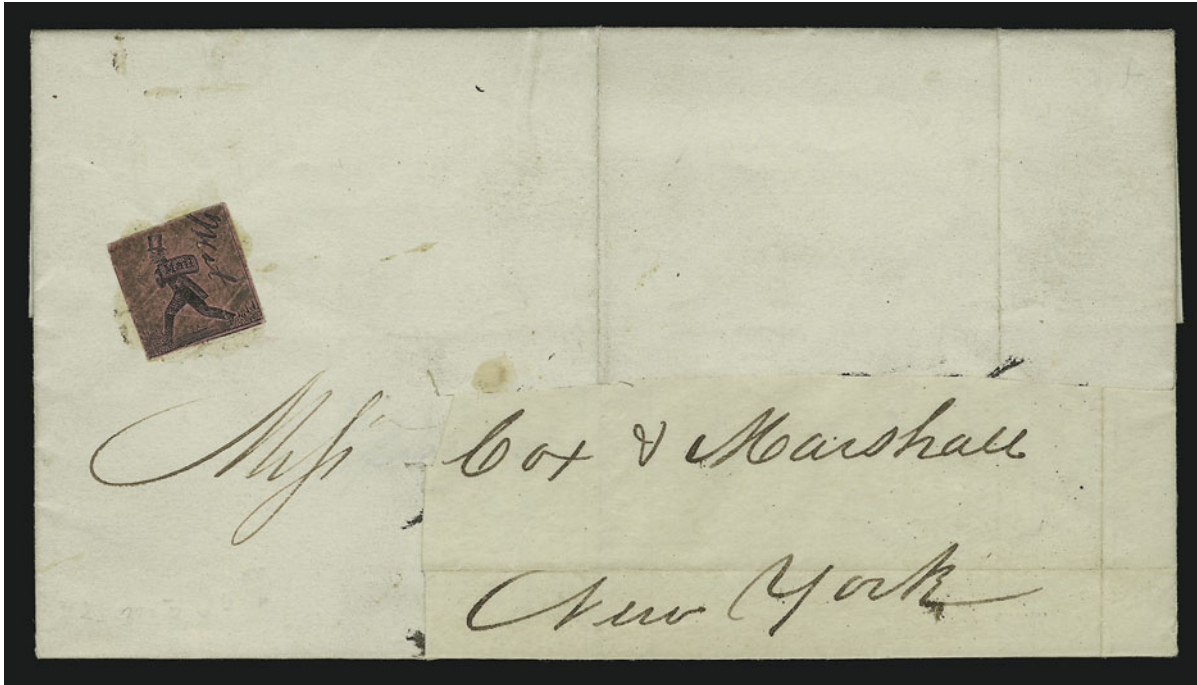 Mail
Mess
Cox & Marshall
New York